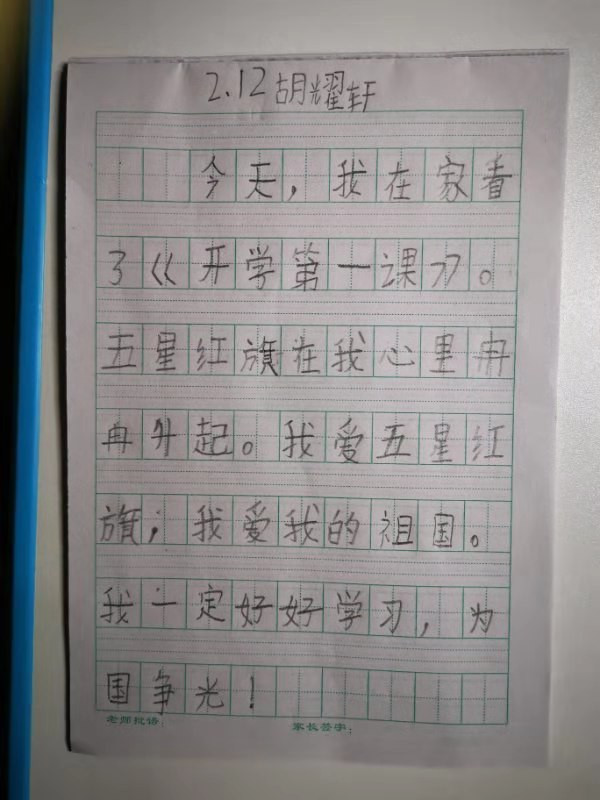 2.12胡耀轩
今天，我在家看
了《开学第一课》。
五星红旗在我心里冉
冉升起。我爱五星红
旗；我爱我的祖国。
我一定好好学习，为
国争光！
老师批语：
家长签字：